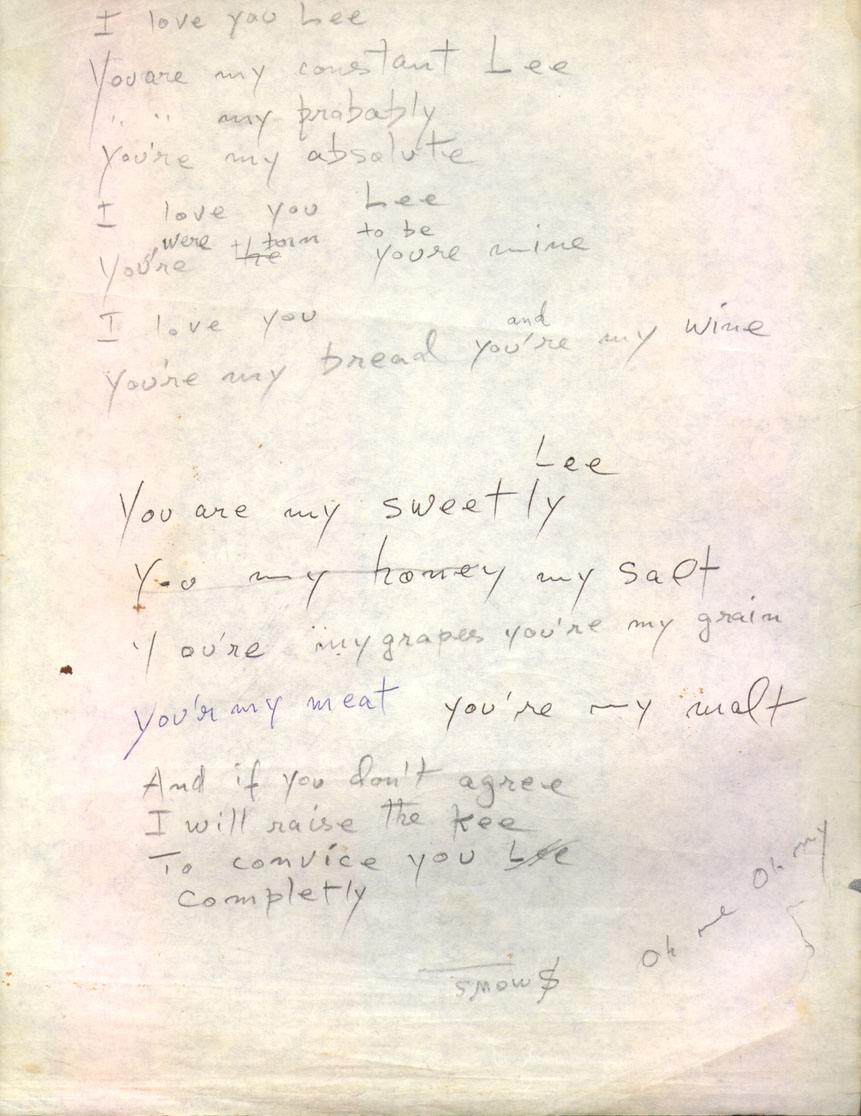 I love you Lee
You are my constant Lee
" " my probably
you're my absolute
I love you Lee
were born to be
You're the youre mine
I love you
and
you're my bread you're my wine
Lee
You are my sweetly
my honey my salt
You're my grapes you're my grain
you'r my meat you're my malt
And if you don't agree
I will raise the kee
To convice you Lee
completly
Oh me Oh my